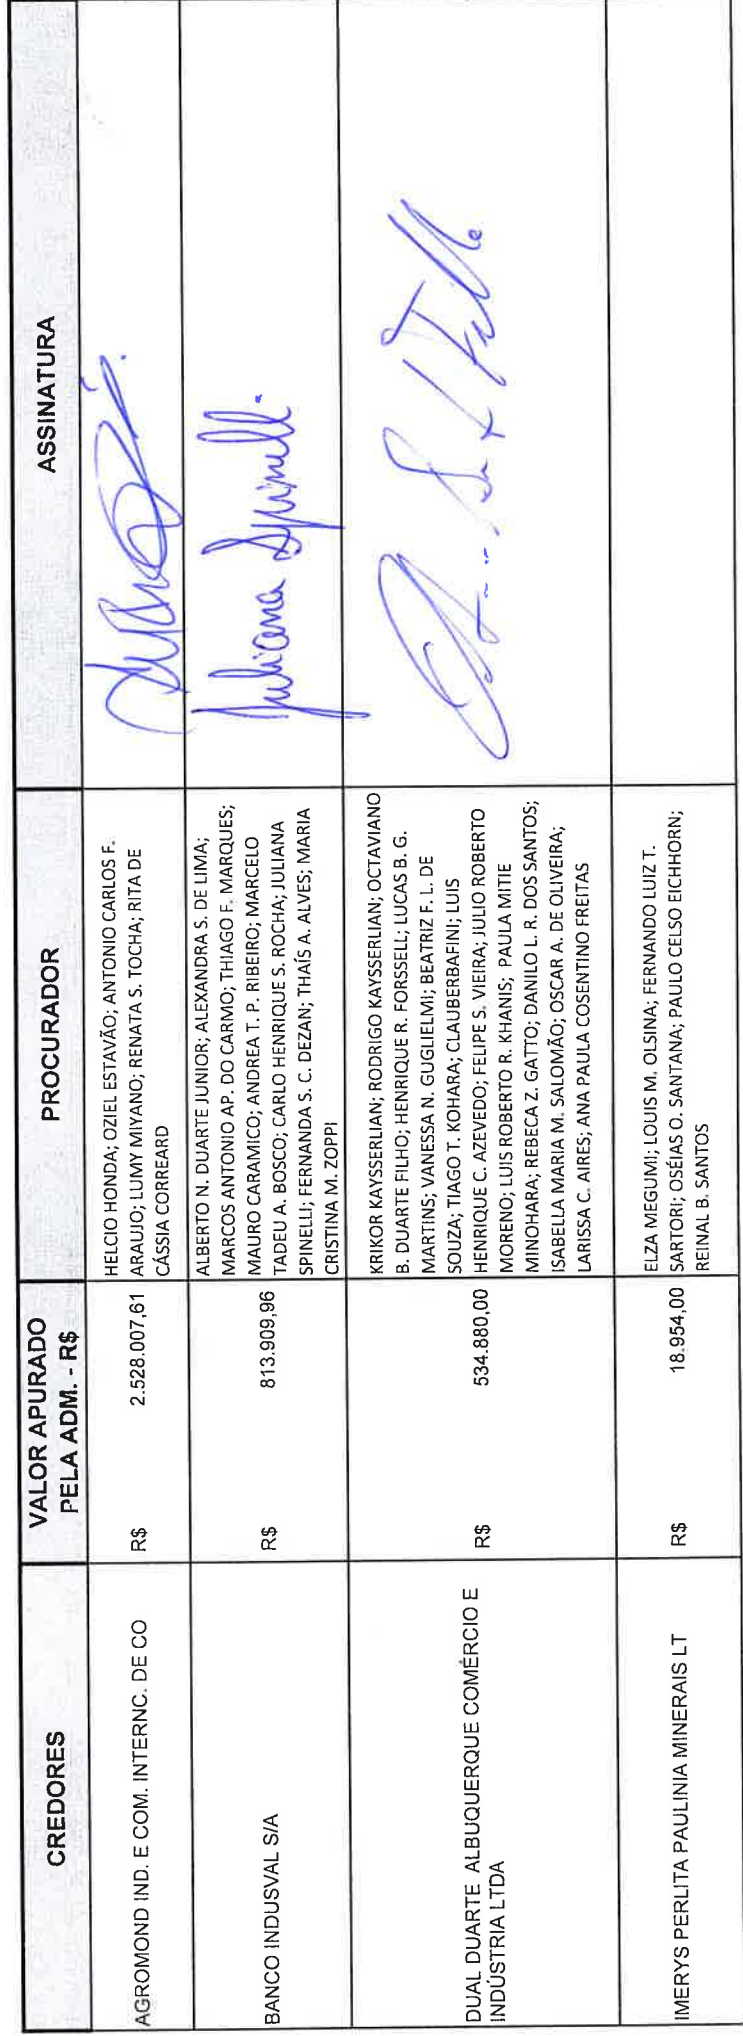 CREDORES
VALOR APURADO
PELA ADM. - R$
PROCURADOR
ASSINATURA
AGROMOND IND. E COM. INTERNC. DE CO
R$ 2.528.007,61
HELCIO HONDA; OZIEL ESTAVÃO; ANTONIO CARLOS F.
ARAUJO; LUMY MIYANO; RENATA S. TOCHA; RITA DE
CÁSSIA CORREARD
BANCO INDUSVAL S/A
R$ 813.909,96
ALBERTO N. DUARTE JUNIOR; ALEXANDRA S. DE LIMA;
MARCOS ANTONIO AP. DO CARMO; THIAGO F. MARQUES;
MAURO CARAMICO; ANDREA T. P. RIBEIRO; MARCELO
TADEU A. BOSCO; CARLO HENRIQUE S. ROCHA; JULIANA
SPINELLI; FERNANDA S. C. DEZAN; THAÍS A. ALVES; MARIA
CRISTINA M. ZOPPI
Juliana Spinelli
DUAL DUARTE ALBUQUERQUE COMÉRCIO E
INDÚSTRIA LTDA
R$ 534.880,00
KRIKOR KAYSSERLIAN; RODRIGO KAYSSERLIAN; OCTAVIANO
B. DUARTE FILHO; HENRIQUE R. FORSSELL; LUCAS B. G.
MARTINS; VANESSA N. GUGLIELMI; BEATRIZ F. L. DE
SOUZA; TIAGO T. KOHARA; CLAUBERBAFINI; LUIS
HENRIQUE C. AZEVEDO; FELIPE S. VIEIRA; JULIO ROBERTO
MORENO; LUIS ROBERTO R. KHANIS; PAULA MITIE
MINOHARA; REBECA Z. GATTO; DANILO L. R. DOS SANTOS;
ISABELLA MARIA M. SALOMÃO; OSCAR A. DE OLIVEIRA;
LARISSA C. AIRES; ANA PAULA COSENTINO FREITAS
IMERYS PERLITA PAULINIA MINERAIS LT
R$ 18.954,00
ELZA MEGUMI; LOUIS M. OLSINA; FERNANDO LUIZ T.
SARTORI; OSÉIAS O. SANTANA; PAULO CELSO EICHHORN;
REINAL B. SANTOS